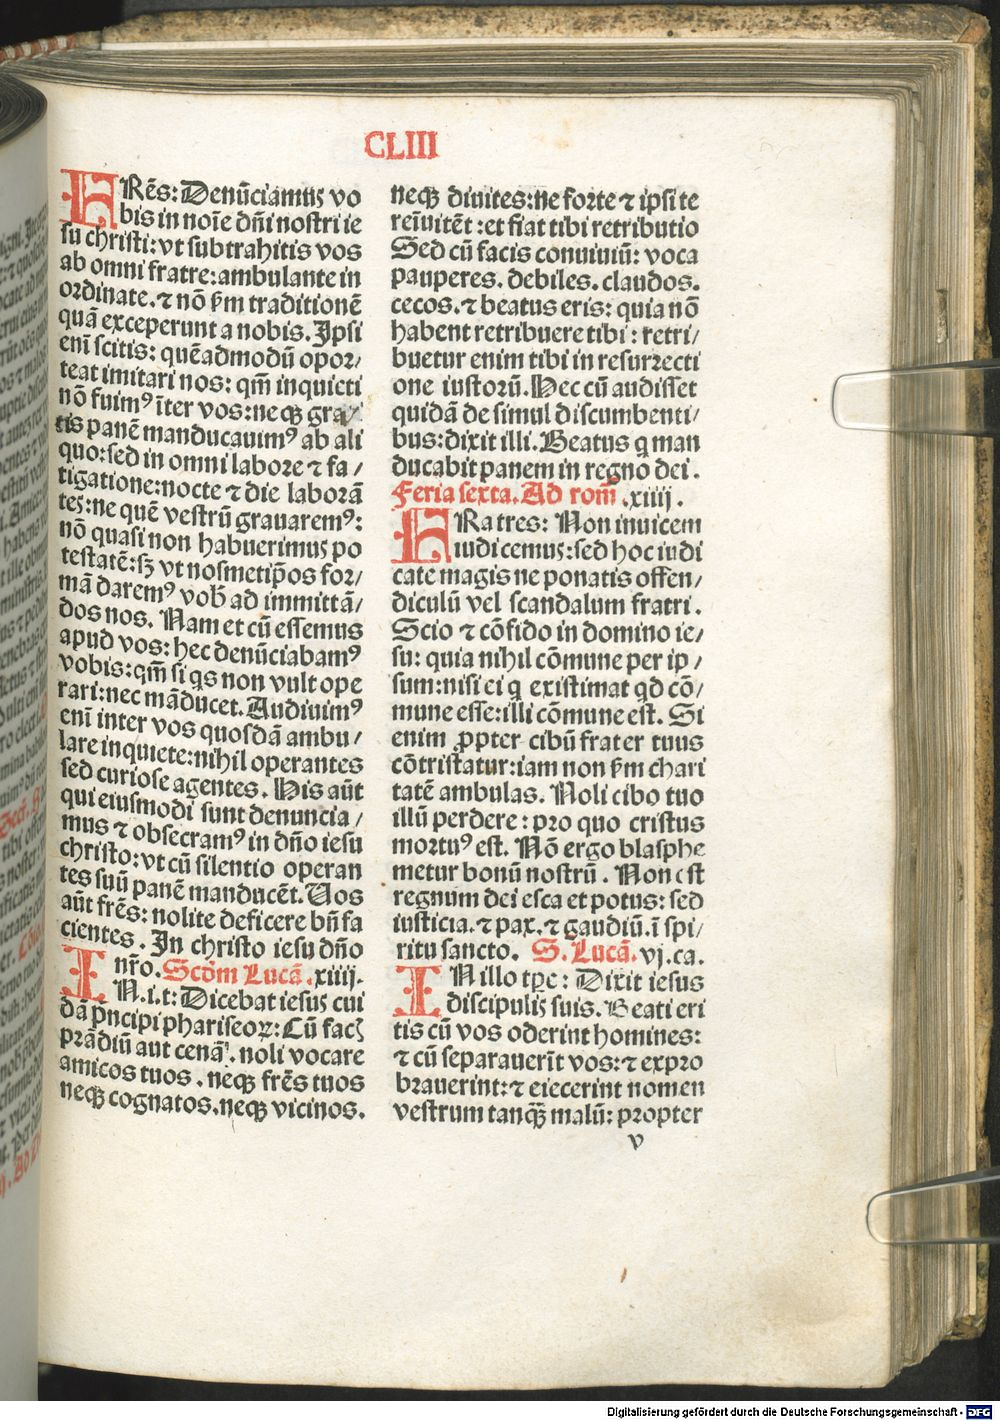 CLIII
FRēs: Denūciamus vo
bis in noīe dn̄i nostri ie
su christi: vt subtrahitis vos
ab omni fratre: ambulante in
ordinate. ⁊ nō ẜm traditionē
quā exceperunt a nobis. Ipsi
enī scitis: quēadmodū opor/
teat imitari nos: qm̄ inquieti
nō fuimꝰ īter vos: neqꝫ gra
tis panē manducauimꝰ ab ali
quo: sed in omni labore ⁊ fa/
tigatione: nocte ⁊ die laborā
tes: ne quē vestrū grauaremꝰ:
nō quasi non habuerimus po
testatē: sꝫ vt nosmetip̄os for/
mā daremꝰ vob̄ ad immittā/
dos nos. Nam et cū essemus
apud vos: hec denūciabamꝰ
vobis: qm̄ si qs non vult ope
rari: nec māducet. Audiuimꝰ
enī inter vos quosdā ambu/
lare inquiete: nihil operantes
sed curiose agentes. His aūt
qui eiusmodi sunt denuncia/
mus ⁊ obsecramꝰ in dn̄o iesu
christo: vt cū silentio operan
tes suū panē manducēt. Uos
aūt frēs: nolite deficere bn̄ fa
cientes. In christo iesu dn̄o
nr̄o. Scd̄m Lucā. xiiij.
IN. i. t: Dicebat iesus cui
dā pn̄cipi phariseoꝝ: Cū facꝭ
prādiū aut cenā. noli vocare
amicos tuos. neqꝫ frēs tuos
neqꝫ cognatos. neqꝫ vicinos.
neqꝫ diuites: ne forte ⁊ ipsi te
reīuitēt: et fiat tibi retributio
Sed cū facis conuiuiū: voca
pauperes. debiles. claudos.
cecos. ⁊ beatus eris: quia nō
habent retribuere tibi: retri/
buetur enim tibi in resurrecti
one iustorū. Hec cū audisset
quidā de simul discumbenti/
bus: dixit illi. Beatus q man
ducabit panem in regno dei.
Feria sexta. Ad rom̄. xiiij.
FRatres: Non inuicem
iudicemus: sed hoc iudi
cate magis ne ponatis offen/
diculū vel scandalum fratri.
Scio ⁊ cōfido in domino ie/
su: quia nihil cōmune per ip/
sum: nisi ei q existimat qd cō/
mune esse: illi cōmune est. Si
enim ꝓpter cibū frater tuus
cōtristatur: iam non ẜm chari
tatē ambulas. Noli cibo tuo
illū perdere: pro quo cristus
mortuꝰ est. Nō ergo blasphe
metur bonū nostrū. Non est
regnum dei esca et potus: sed
iusticia. ⁊ pax. ⁊ gaudiū. ī spi/
ritu sancto. S. Lucā. vj. ca.
IN illo tꝑe: Dixit iesus
discipulis suis. Beati eri
tis cū vos oderint homines:
⁊ cū separauerīt vos: ⁊ expro
brauerint: ⁊ eiecerint nomen
vestrum tanqꝫ̄ malū: propter
v
Digitalisierung gefördert durch die Deutsche Forschungsgemeinschaft - DFG